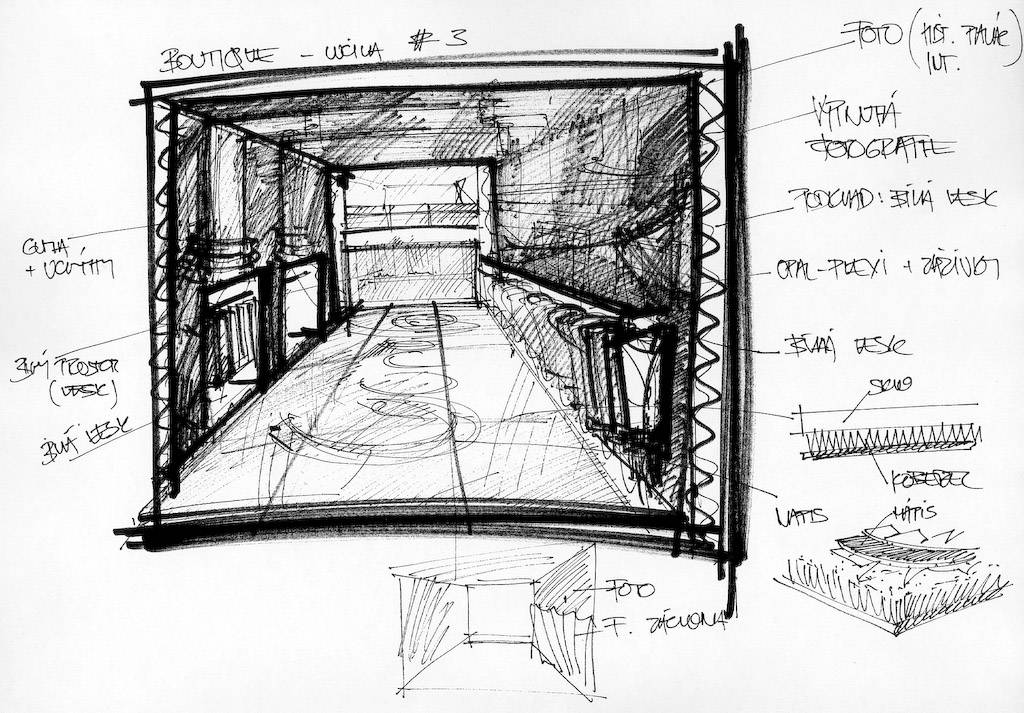 BOUTIQUE - # 3
FOTO (HIST. PALÁC
INT.)
VYPNUTÁ
FOTOGRAFIE
PODKLAD: BÍLÁ LESK
OPAL-PLEXI + ZÁŘIVKY
BÍLÁ LESK
SKLO
KOBEREC
NÁPIS
NÁPIS
BÍLÝ PROSTOR
(LESK)
BÍLÁ LESK
FOTO
F. ZÁCLONA